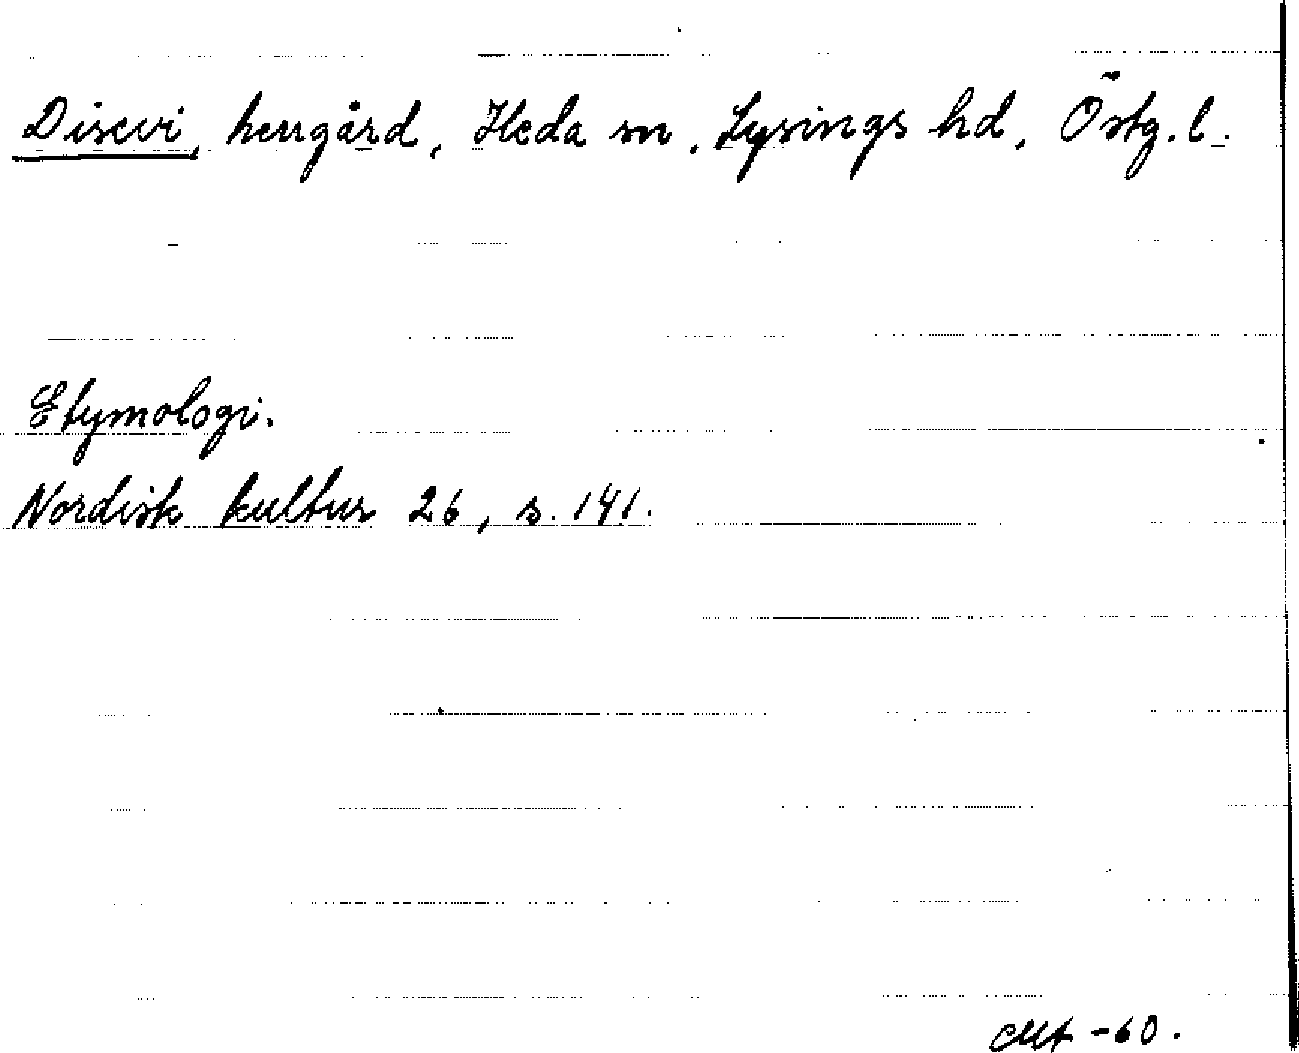 Disevi, herrgård, Heda sn, Lysings hd, Östg. l.
Etymologi.
Nordisk kultur 26, s. 141.
-60.